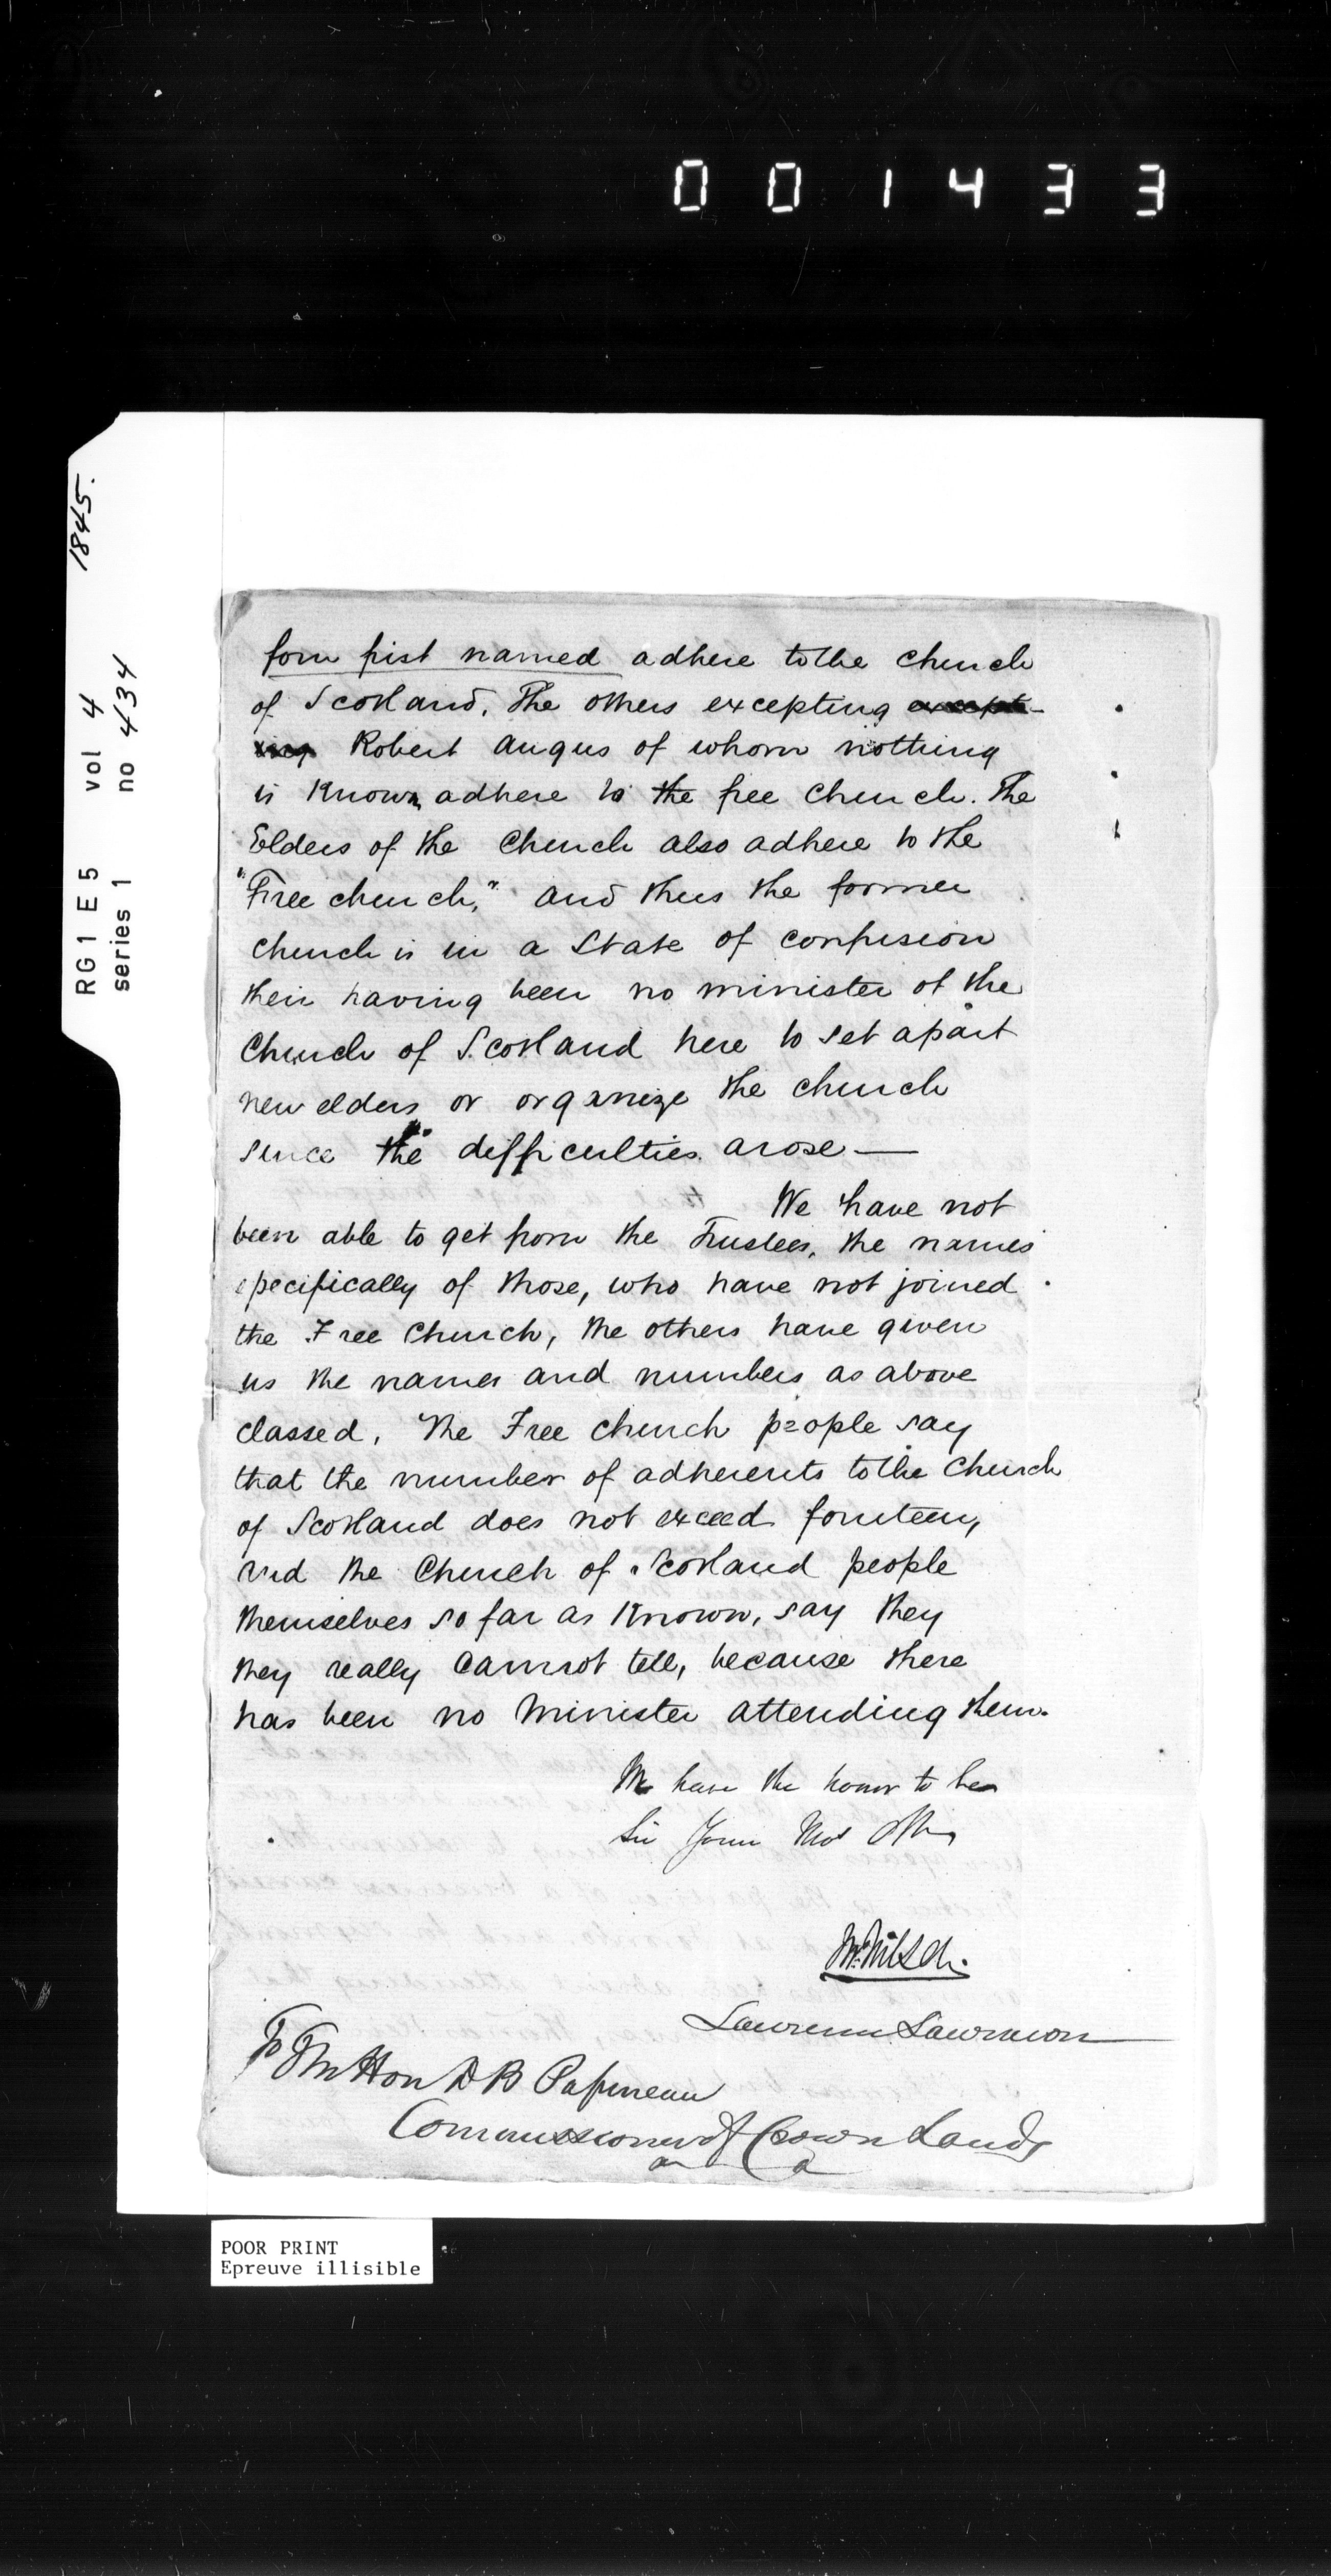 001433
1845.
RG 1 E 5 vol 4
series 1 no 434
four first named adhere to the Church
of Scotland. The others excepting except-
ing Robert Angus of whom nothing
is Known adhere to the free Church. The
Elders of the Church also adhere to the
"Free church," and thus the former
Church is in a State of confusion
their having been no minister of the
Church of Scotland here to set apart
new elders or organize the church
since the difficulties arose—
We have not
been able to get from the Trustees, the names
specifically of those, who have not joined
the Free Church, the others have given
us the names and numbers as above
classed. The Free Church people say
that the number of adherents to the Church
of Scotland does not exceed fourteen,
and the Church of Scotland people
themselves so far as Known, say they
they really cannot tell, because there
has been no Minister attending them.
We have the honor to be
Sir Your Mot Ob
Lawrence Lawrason
To The Hon D B Papineau
Commissioner of Crown Lands
POOR PRINT
Epreuve illisible